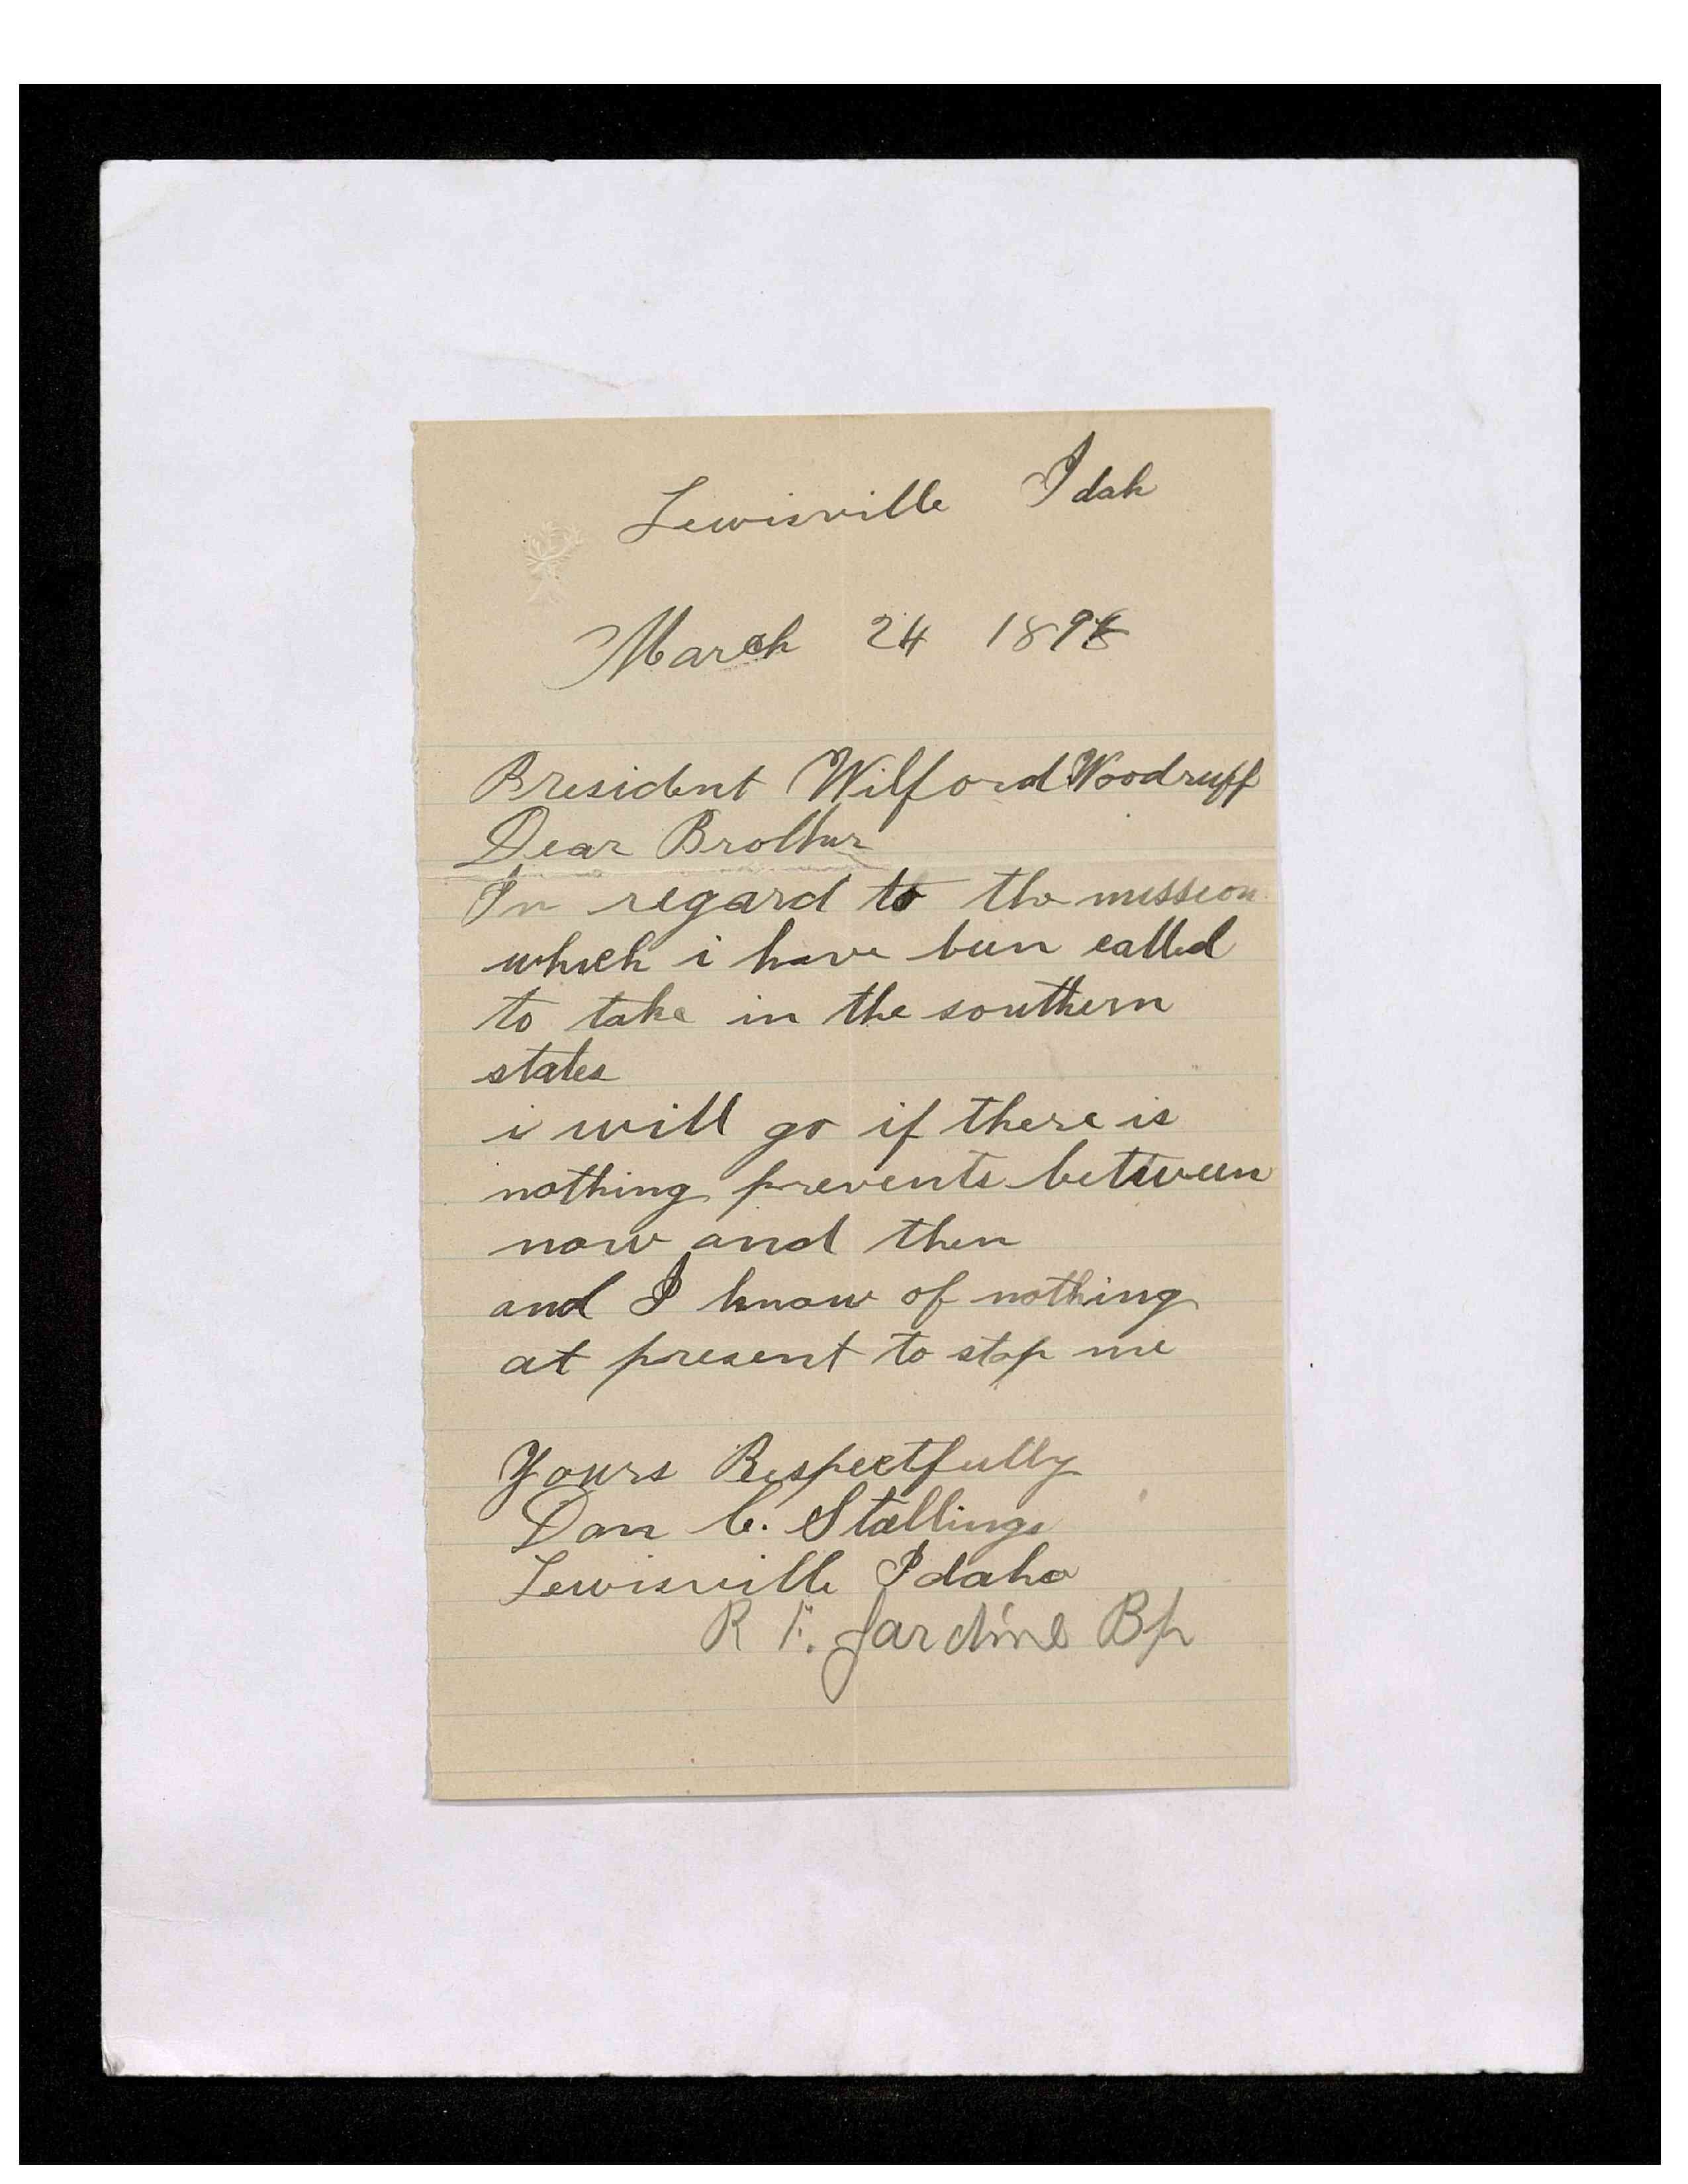 Lewisville Idah
March 24 189
President Wilford Woodruff
Dear Brother
In regard to the mission
which i have been called
to take in the southern
states
i will go if there is
nothing prevents between
now and then
and I know of nothing
at present to stop me
Yours Respectfully
Dan C. Stallings
Lewisville Idaho
R F. Jardine Bp